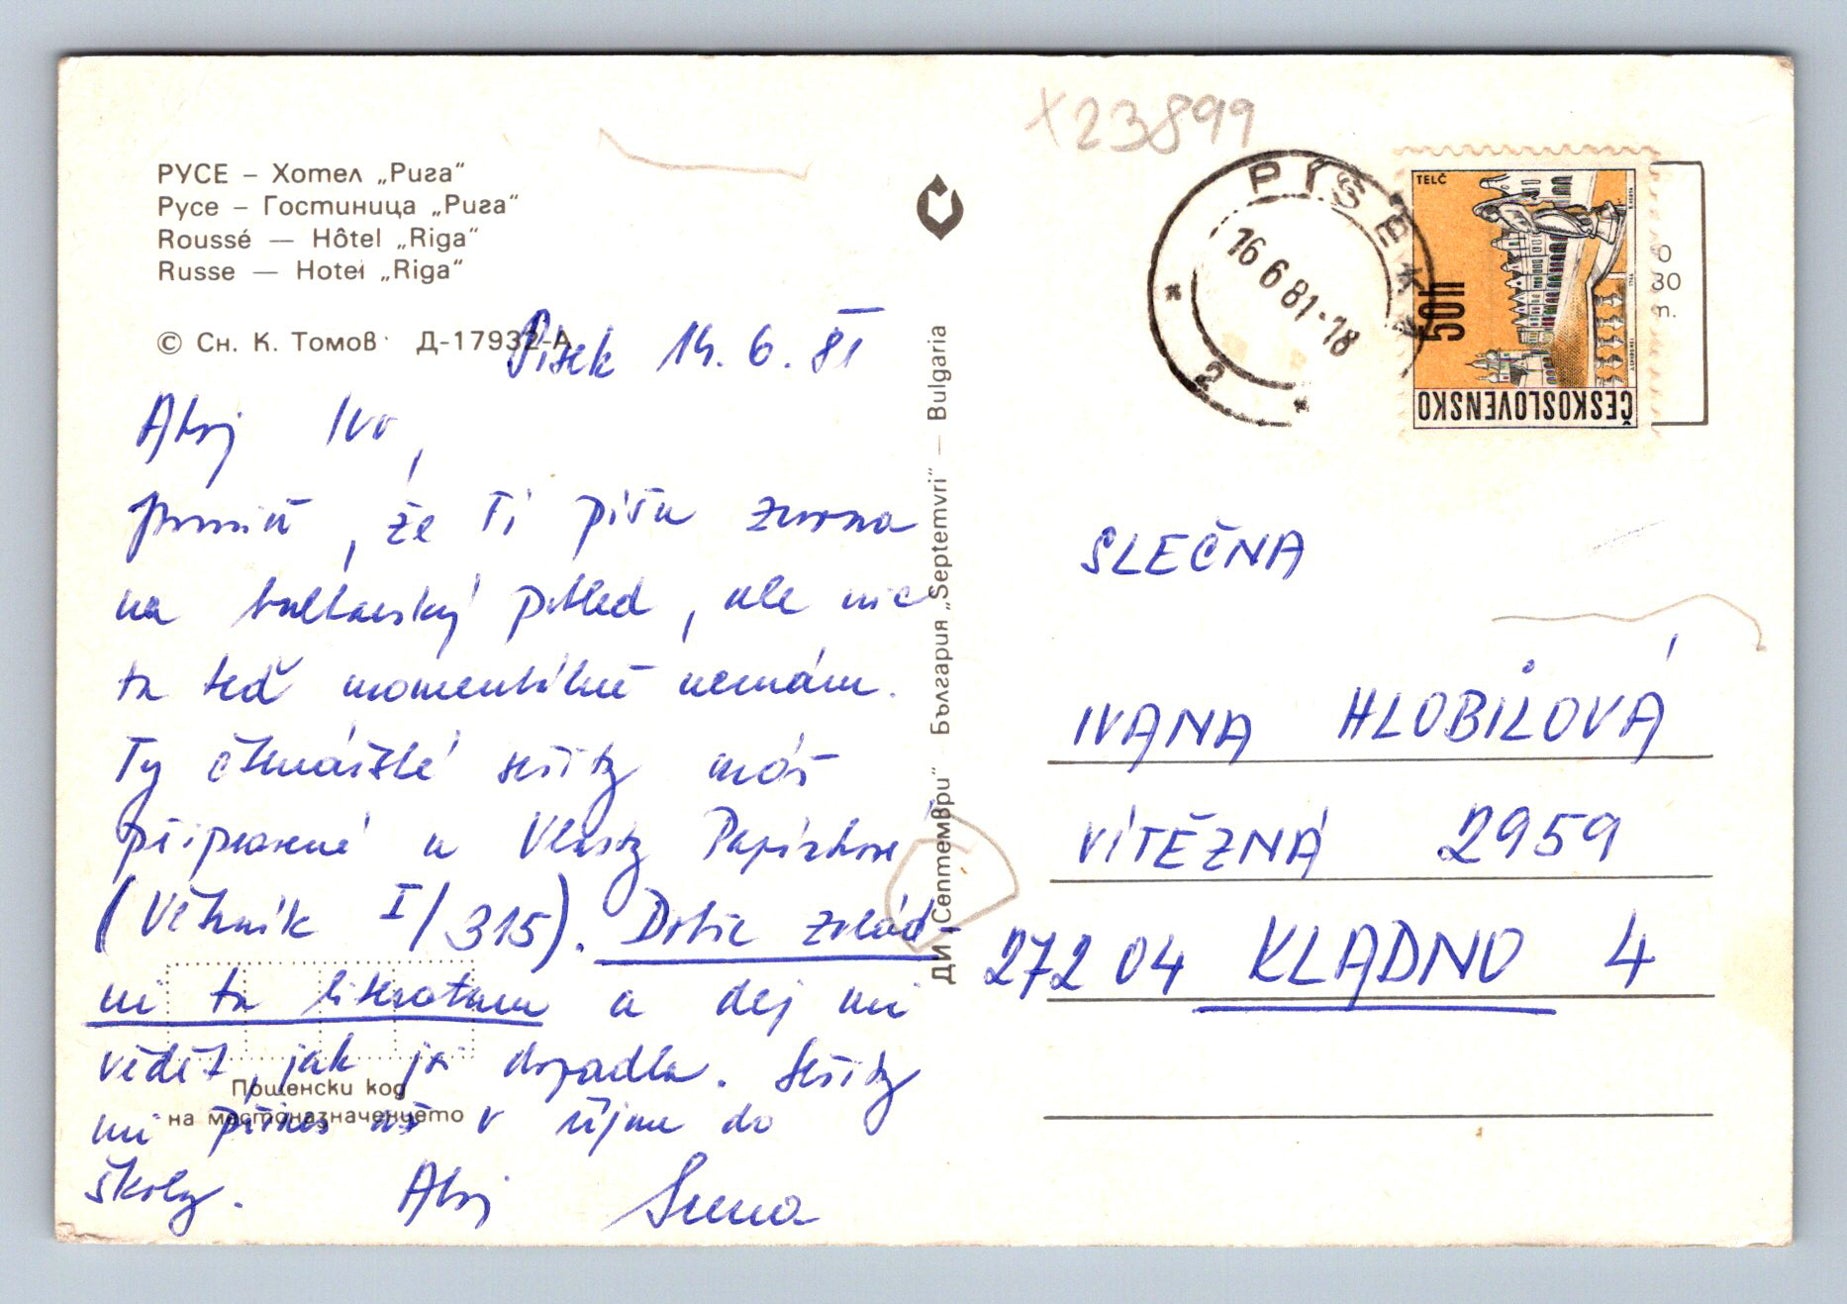 РУСЕ – Хотел „Рига“
Русе – Гостиница „Рига“
Roussé — Hôtel „Riga“
Russe — Hotel „Riga“
© Сн. К. Томов Д-17932-А
Písek 14. 6. 81
Ahoj Ivo,
promiň, že Ti píšu zrovna
na bulharský pohled, ale nic
tu teď momentálně nemám.
Ty čtenářské sešity máš
připravené u Vlasty Papírkové
(Větrník I/315). Dobře zvlád-
ni tu literaturu a dej mi
vědět, jak jsi dopadla. Sešity
mi přines až v říjnu do
školy. Ahoj
Пощенски код
на местоназначението
ДИ „Септември“ – България „Septemvri“ — Bulgaria
X23899
PÍSEK 1
16 6 81-18
2
TELČ
50h
ČESKOSLOVENSKO
0
30
m.
SLEČNA
IVANA HLOBILOVÁ
VÍTĚZNÁ 2959
272 04 KLADNO 4